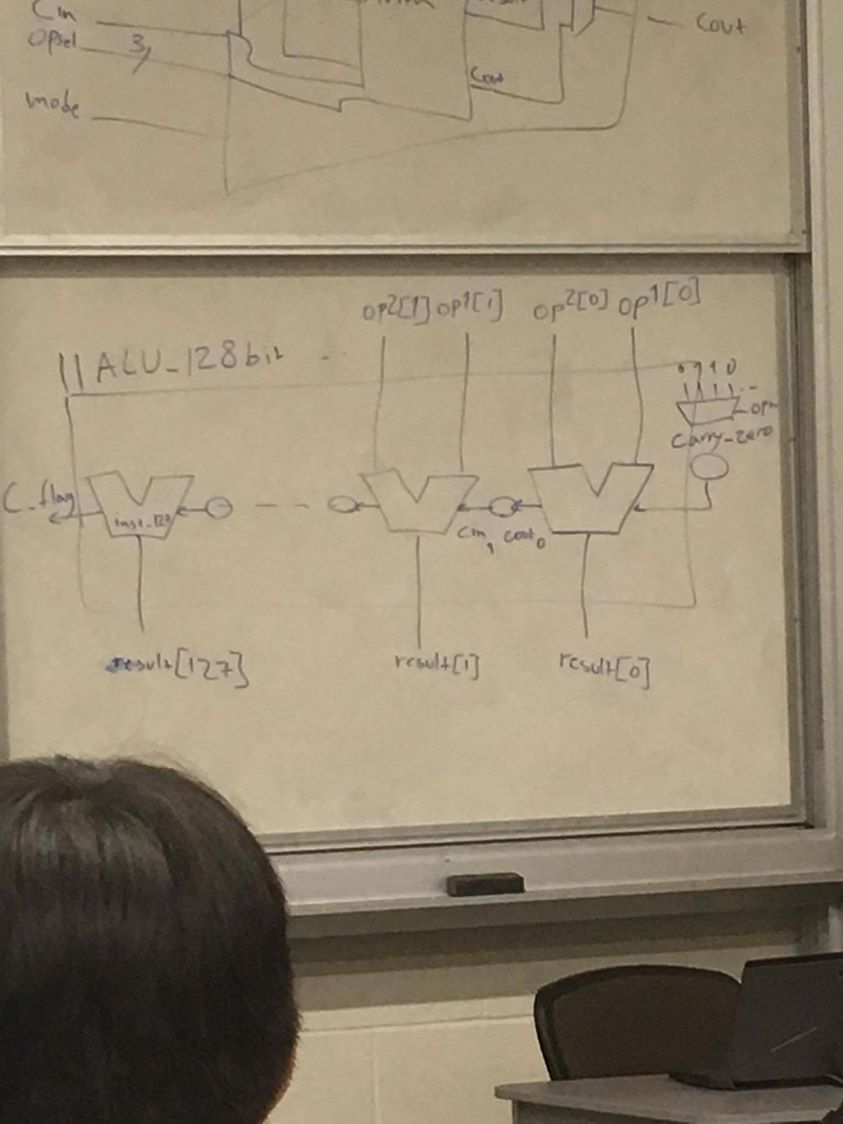 Cin
Opsel 3
Cout
Cout
mode
op2[1] op1[1] op2[0] op1[0]
ALU_128bit
carry-zero
C_flag
Cin1 cout0
result[127] result[1] result[0]